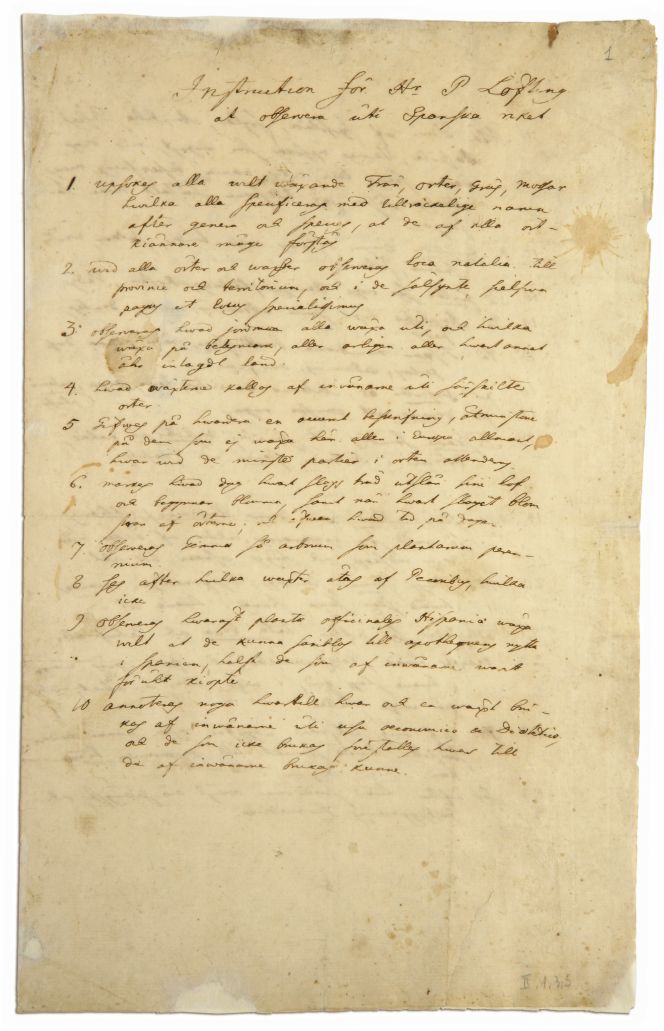 1
Instruction för Hr P Löfling
at observera uti Spanska riket
1. upsökes alla wilt wäxande Trän, örter, Gräs, Mossar
hwilka alla specificeras med tillräckelige namn
after genera och species, at de af alla ört-
kiännare måge förstås
2. wid alla örter och wäxter observeras loca natalia till
province och territorium, och i de sälsynte, sielfwa
pagus et locus specialissimus
3. observeras hwad jordmon alla wäxa uti, och hwilka
wäxa på bergen, aller aller hwart annat
åhr intagdt land.
4. hwad wäxterne kallas af inwånarne uti särskilte
orter
5 Gifwes på hwardera en beskrifning, åtminstone
på dem som ej wäxa här aller i Europa allmänt,
hwar wid de minste partier i örten attenderas
6. märkes hwad dag hwart slags träd utslår sine löf
och begynner blomma, samt när hwart slaget blom
af örterne, och hwad tid på dagen
7 observeras Gemmæ så arborum som plantarum peren-
nium
8 Ses after hwilka wäxter ätas af Pecoribus, hwilka
icke
9 observeras hwarest plantæ officinales Hispaniæ wäxa
wilt at de kunna samblas till apothequens nytta
i Spanien, hälst de som af inwånare warit
förut kiöpte
10 annoteras noga hwartill hwar och en wäxt bru-
kas af inwånarne uti usu oeconomico & Diætetico,
och de som icke brukas föreställes hwar till
de af inwånarne brukas kunne.
II.1.3.5